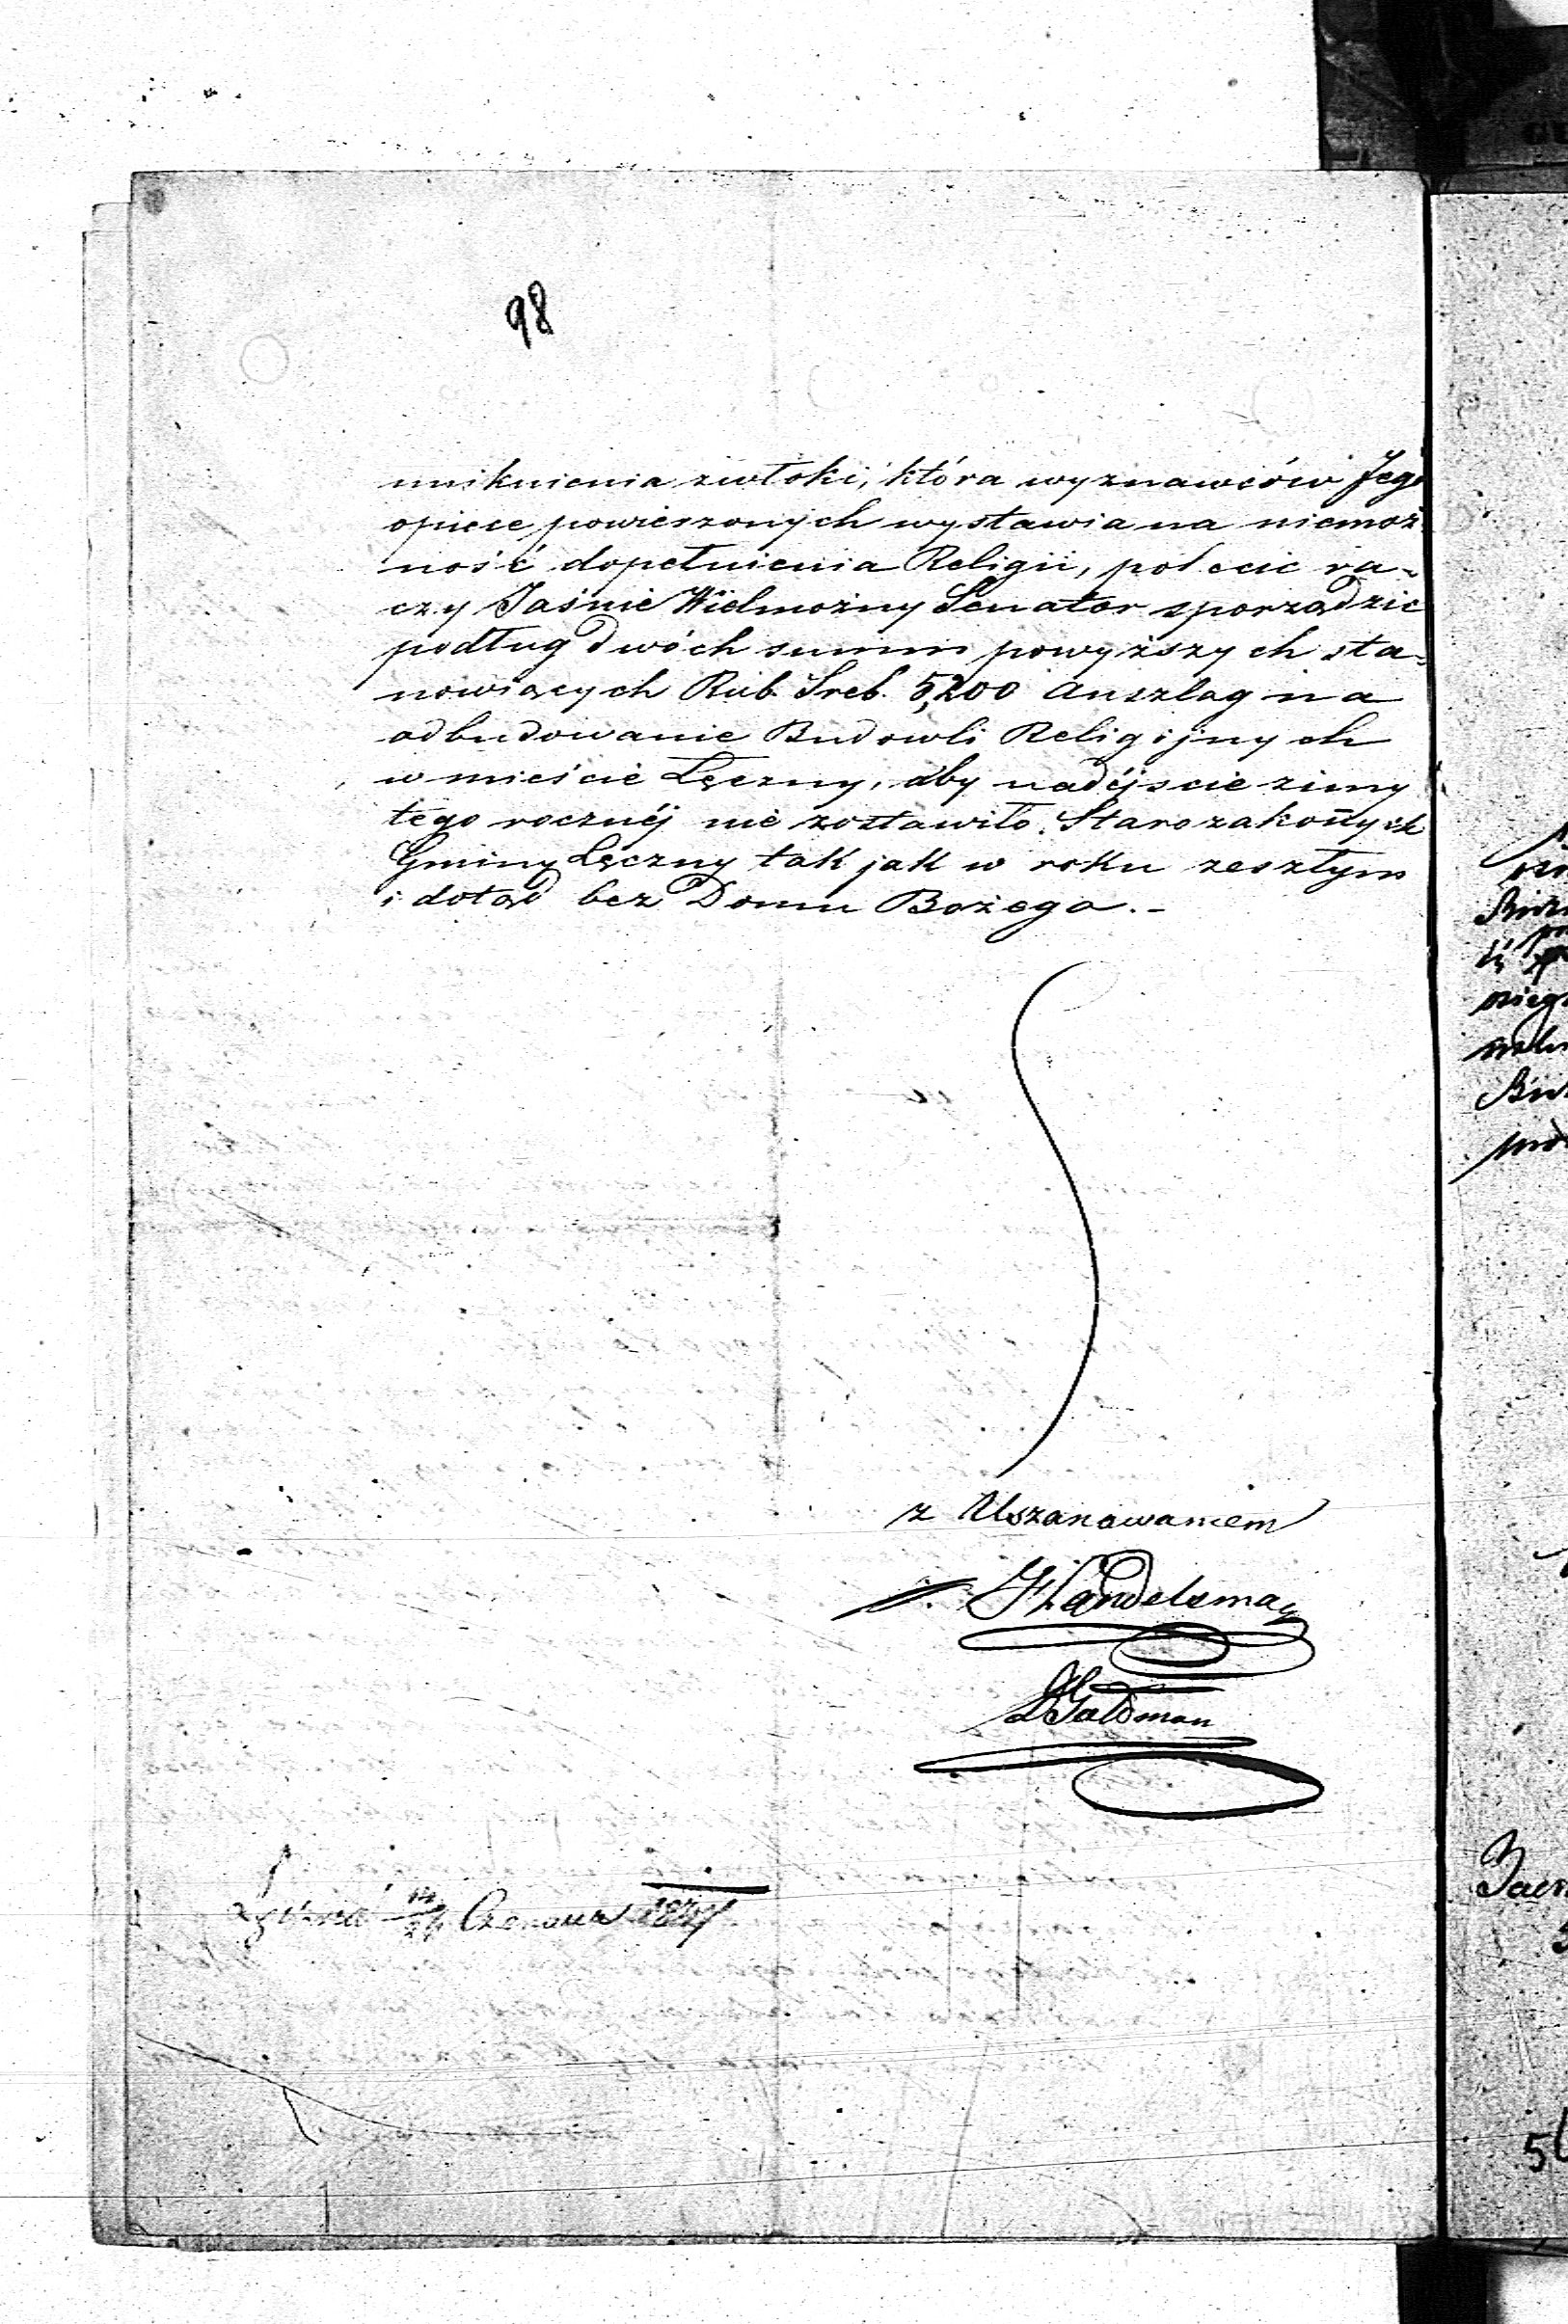 98
uniknienia zwłoki, która wyznawców Jego
opiece powierzonych wystawia na niemoż-
ność dopełnienia Religii, polecić ra-
czy Jaśnie Wielmożny Senator sporządzić
podług dwóch summ powyższych sta-
nowiących Rub. Sreb. 5,200 Anszlag na
odbudowanie Budowli Religijnych
w mieście Łęczny, aby nadéjscie zimy
tego rocznéj nie zostawiło Starozakon̄ych
Gminy Łęczny tak jak w roku zeszłym
i dotąd bez Domu Bożego.-
z Uszanowaniem
Handelsman
Goldman
Czerwca 1847